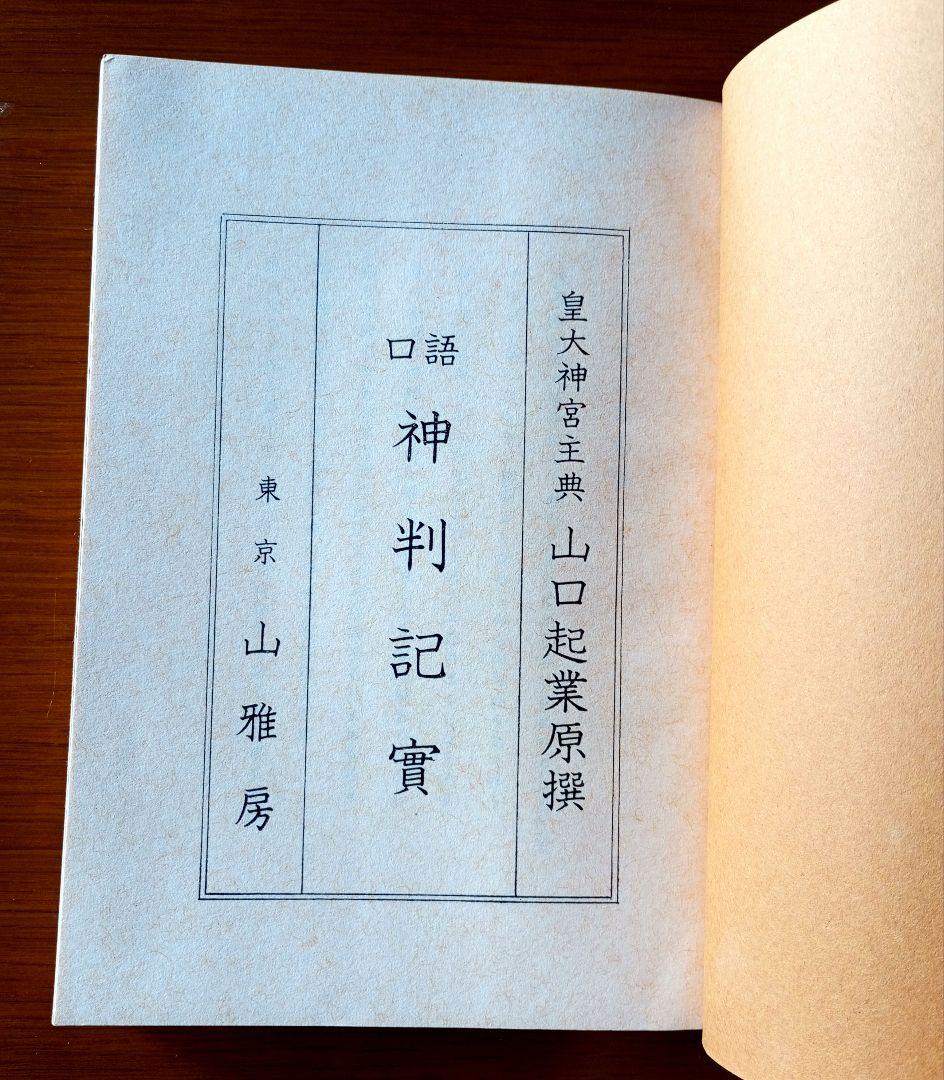 皇大神宮主典 山口起業原撰
口語
神判記實
東京 山雅房